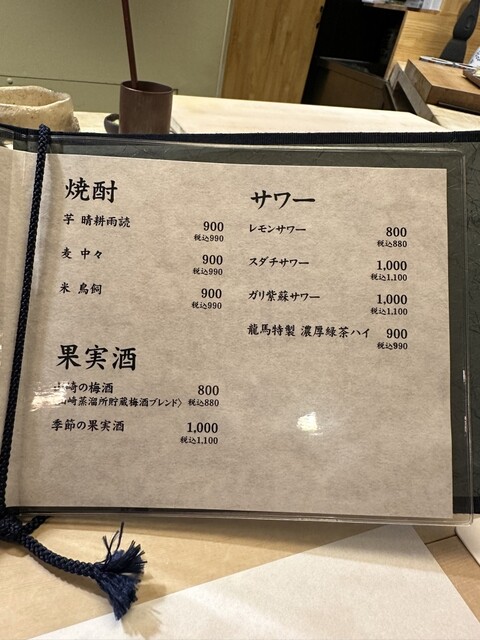 焼酎
芋 晴耕雨読 900
税込990
麦 中々 900
税込990
米 鳥飼 900
税込990
果実酒
山崎の梅酒 800
山崎蒸溜所貯蔵梅酒ブレンド〉 税込880
季節の果実酒 1,000
税込1,100
サワー
レモンサワー 800
税込880
スダチサワー 1,000
税込1,100
ガリ紫蘇サワー 1,000
税込1,100
龍馬特製 濃厚緑茶ハイ 900
税込990